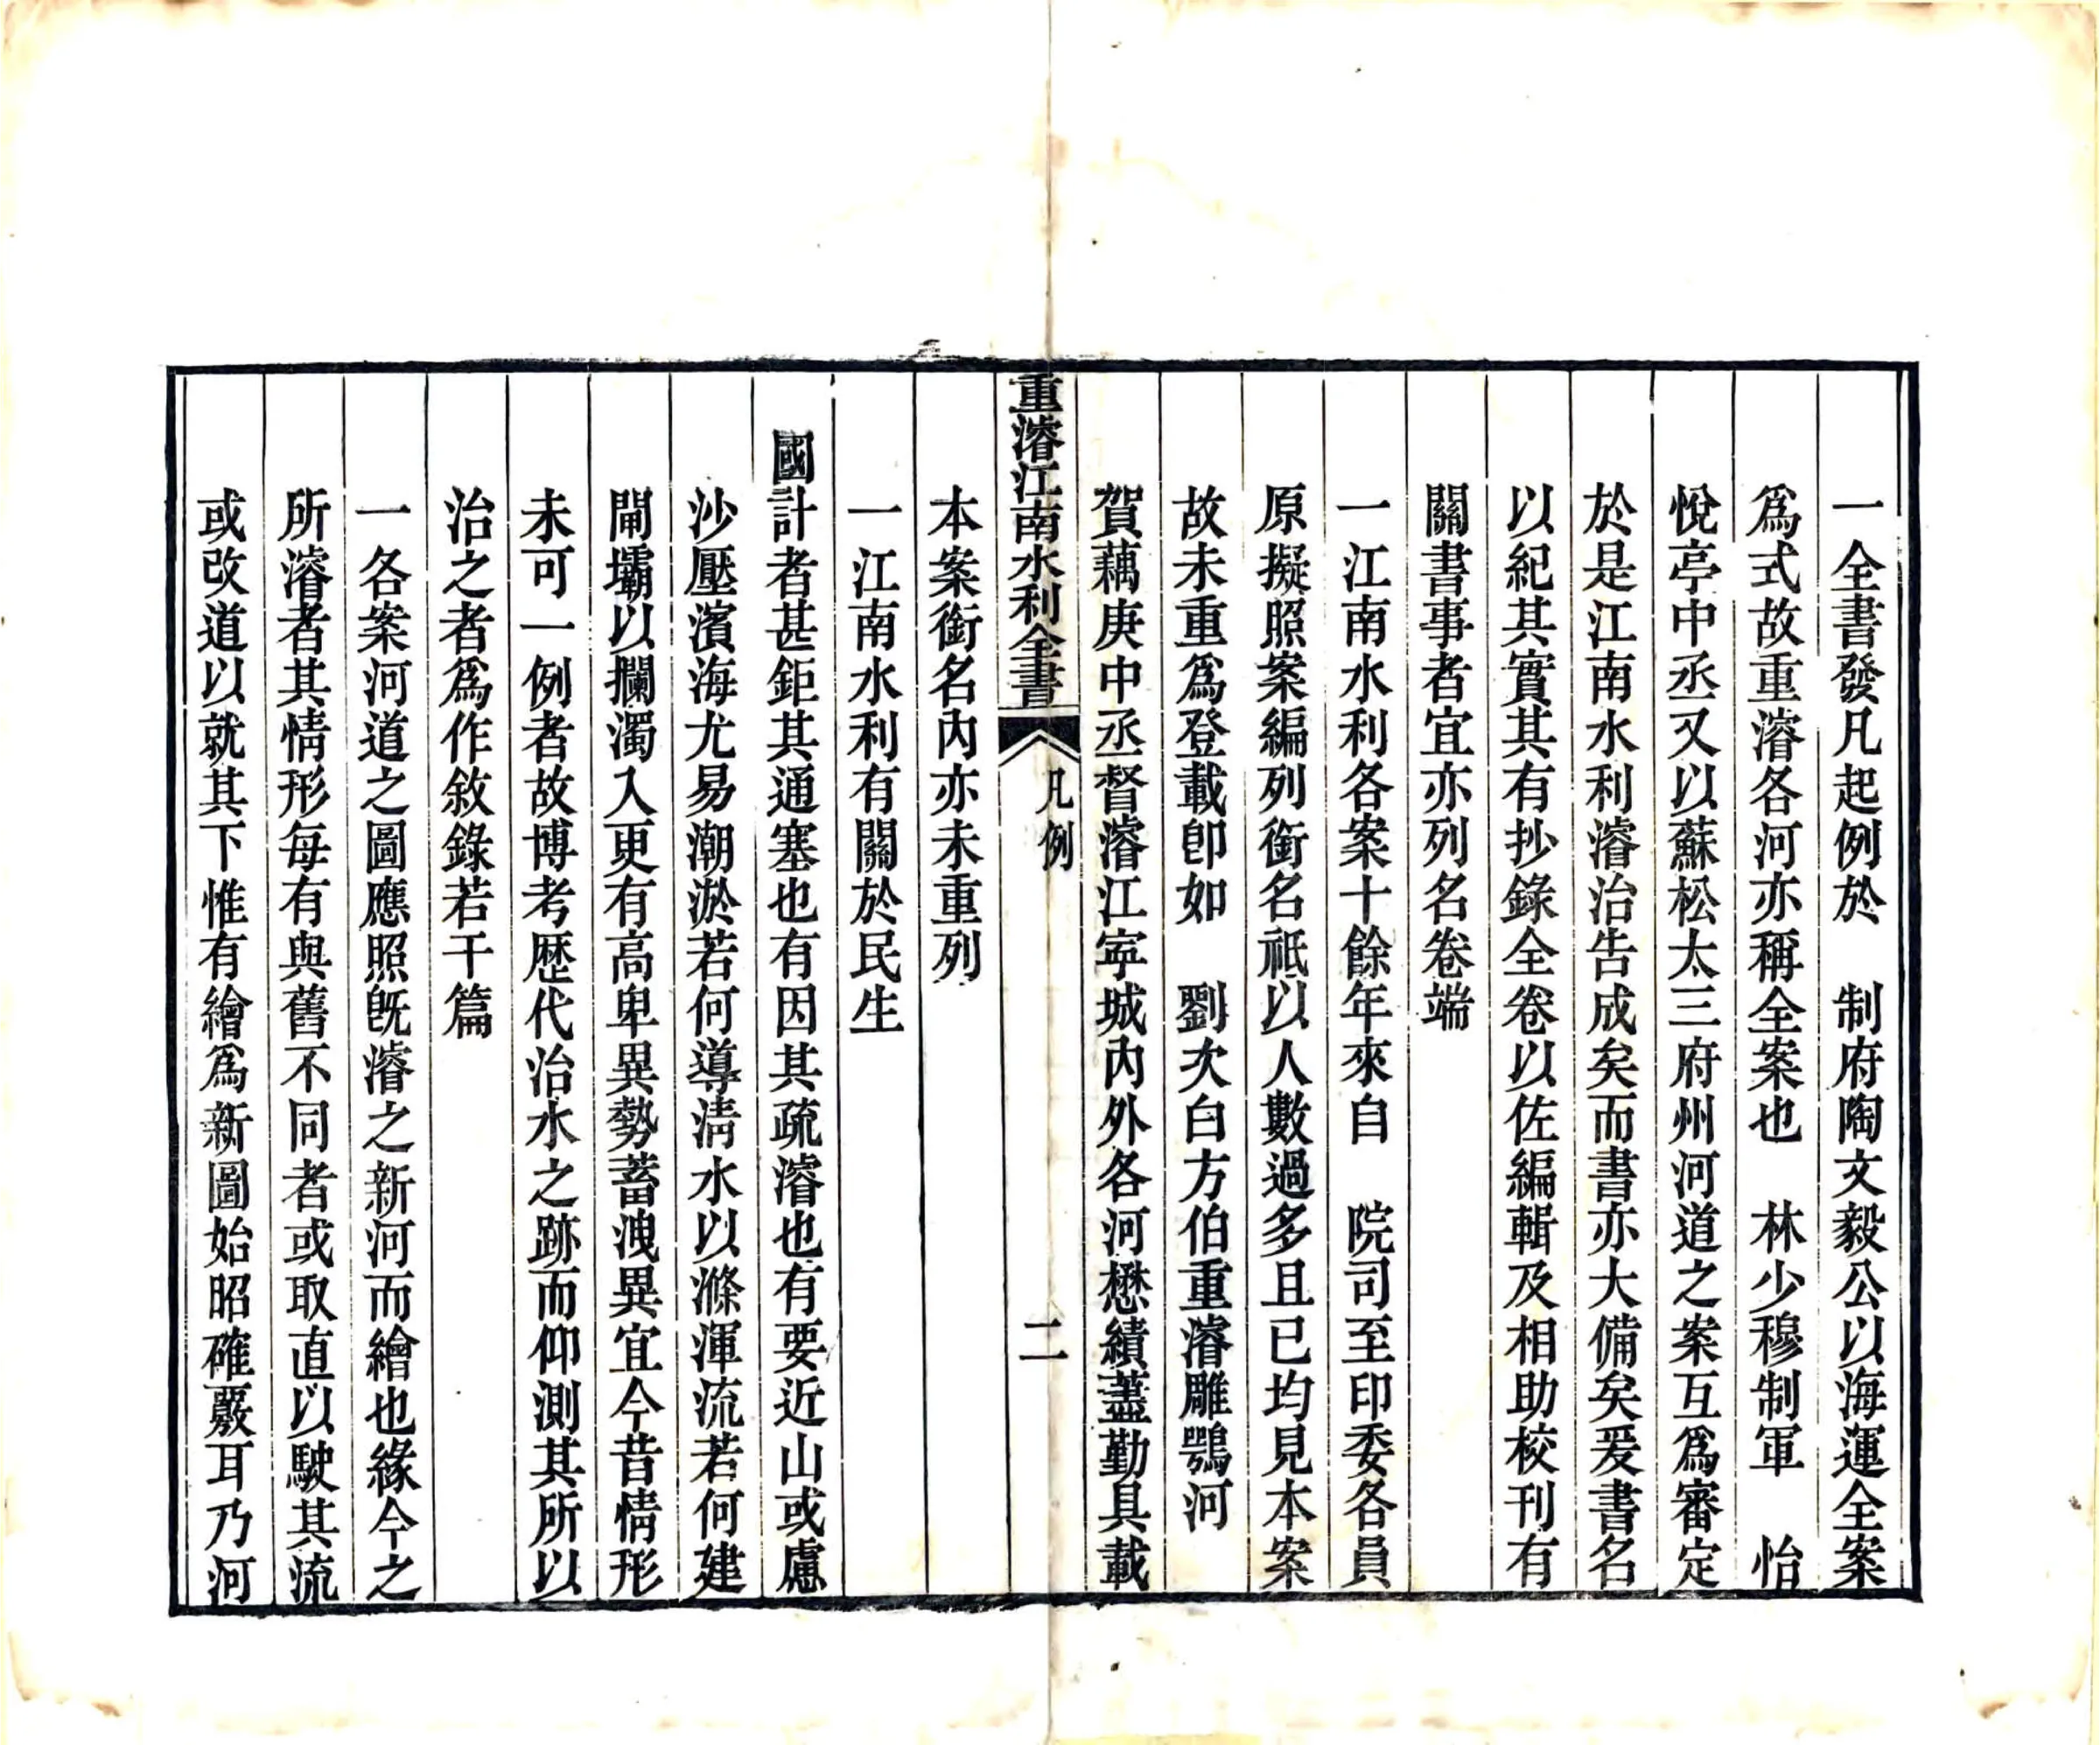 一全書發凡起例於　制府陶文毅公以海運全案
爲式故重濬各河亦稱全案也　林少穆制軍　怡
悅亭中丞又以蘇松太三府州河道之案互爲審定
於是江南水利濬治告成矣而書亦大備矣爰書名
以紀其實其有抄錄全卷以佐編輯及相助校刊有
關書事者宜亦列名卷端
一江南水利各案十餘年來自　院司至印委各員
原擬照案編列銜名祇以人數過多且已均見本案
故未重爲登載卽如　劉次白方伯重濬雕鶚河
賀藕庚中丞督濬江寍城內外各河懋績藎勤具載
重濬江南水利全書　凡例　二
本案銜名內亦未重列
一江南水利有關於民生
國計者甚鉅其通塞也有因其疏濬也有要近山或慮
沙壓濱海尤易潮淤若何導淸水以滌渾流若何建
閘壩以攔濁入更有高卑異勢蓄洩異宜今昔情形
未可一例者故博考歷代治水之跡而仰測其所以
治之者爲作敘錄若干篇
一各案河道之圖應照旣濬之新河而繪也緣今之
所濬者其情形每有與舊不同者或取直以駛其流
或改道以就其下惟有繪爲新圖始昭確覈耳乃河